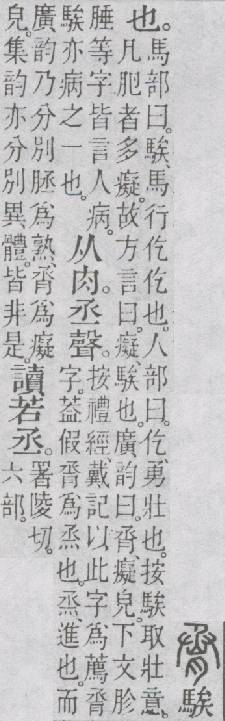 脀騃
也。馬部曰。騃、馬行仡仡也。人部曰。仡、勇壯也。按騃取壯意。
凡肥者多癡。故方言曰。癡、騃也。廣韵曰。脀、癡皃。下文胗
腄等字皆言人病。
騃亦病之一也。
从肉。丞聲。
按禮經、戴記以此字爲薦脀
字。葢假脀爲烝也。烝、進也。而
廣韵乃分別爲熟、脀爲癡
皃。集韵亦分別異體。皆非是。
讀若丞。
署陵切。
六部。